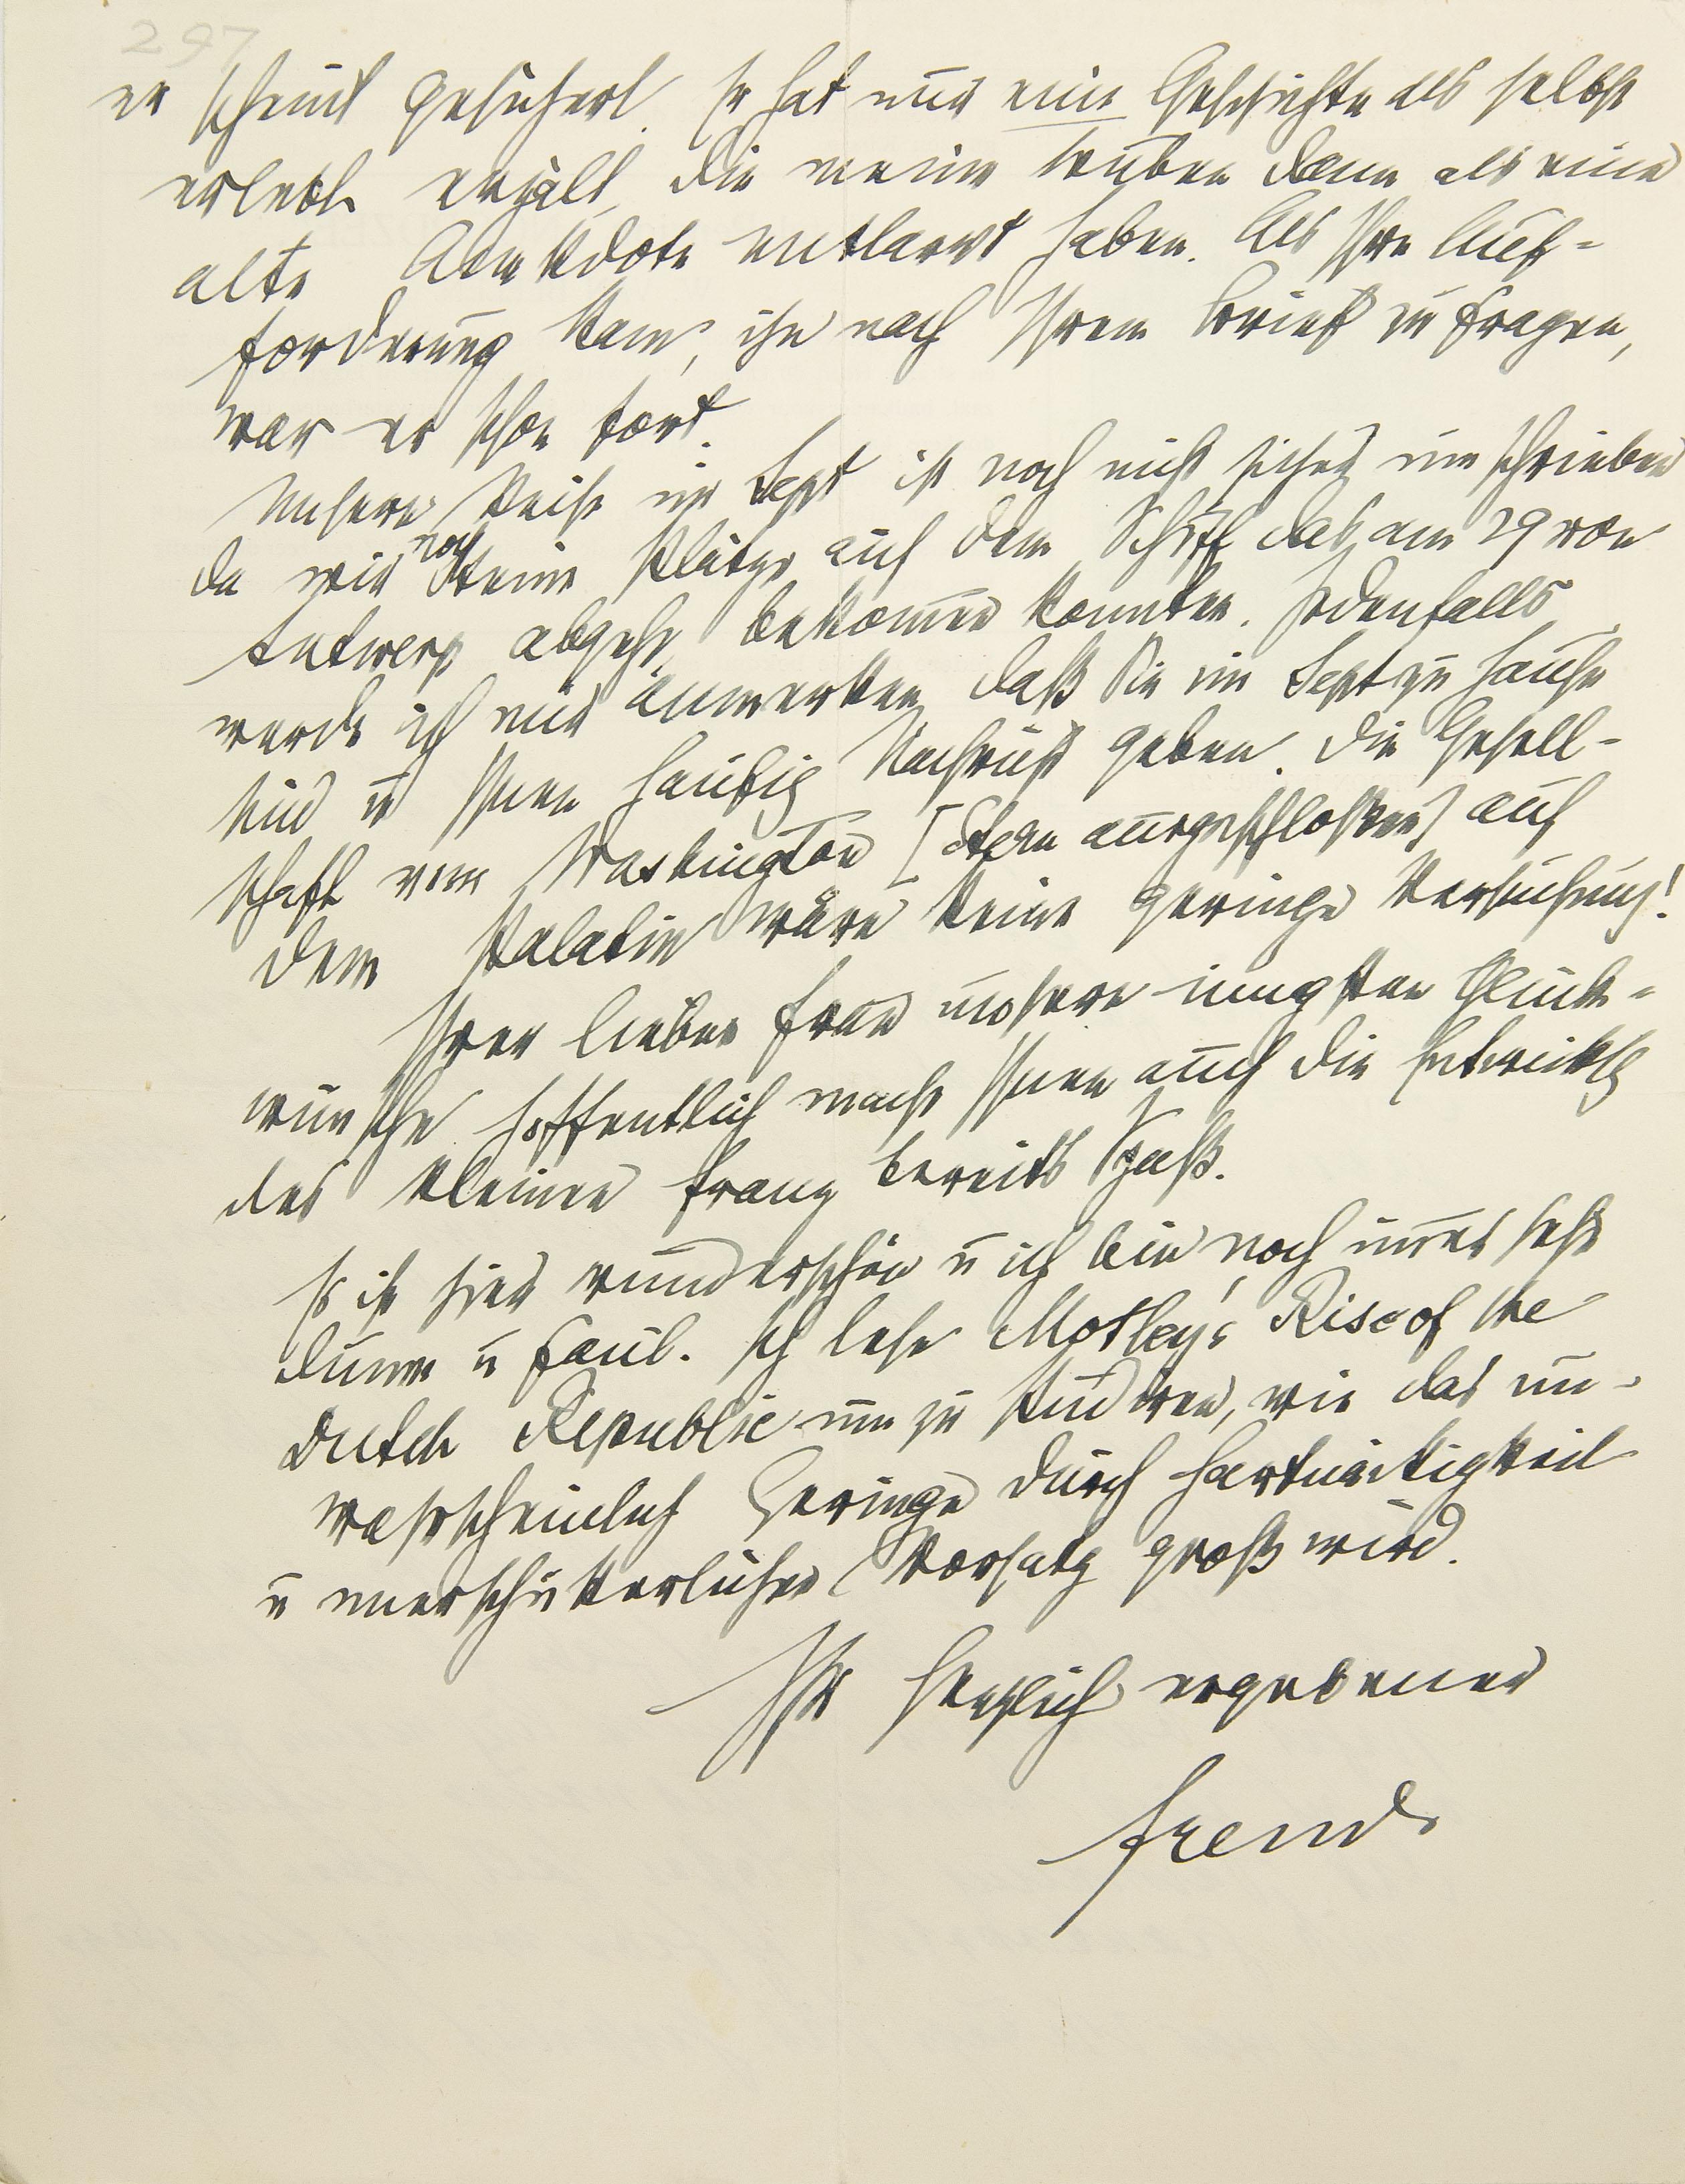 297
er scheint gesichert. Er hat uns eine Geschichte als selbst
erlebt erzält, die meine Buben dann als eine
alte Anekdote entlarvt haben. Als Ihre Auf-
forderung kam, ihn nach Ihrem Brief zu fragen,
war er schon fort.
Unsere Reise im Sept ist noch nicht sicher umschrieben
da wir noch keine Plätze auf dem Schiff das am 29 von
Antwerp abgeht, bekom̄en konnten. Jedenfalls
werde ich mir anmerken, daß Sie im Sept zu Hause
sind u Ihnen häufig Nachricht geben. Die Gesell-
schaft von Washington [Stern ausgeschlossen] auf
dem Palatin wäre keine geringe Versuchung!
Ihrer lieben Frau unsere innigsten Glück-
wünsche. Hoffentlich macht Ihnen auch die Entwicklg
des kleinen Franz bereits Spaß.
Es ist hier wunderschön u ich bin noch im̄er sehr
dumm u faul. Ich lese Motley's Rise of the
Dutch Republic um zu studiren, wie das un-
wahrscheinlich Geringe durch Hartnäckigkeit
u unerschütterlichen Vorsatz groß wird.
Ihr herzlich ergebener
Freud